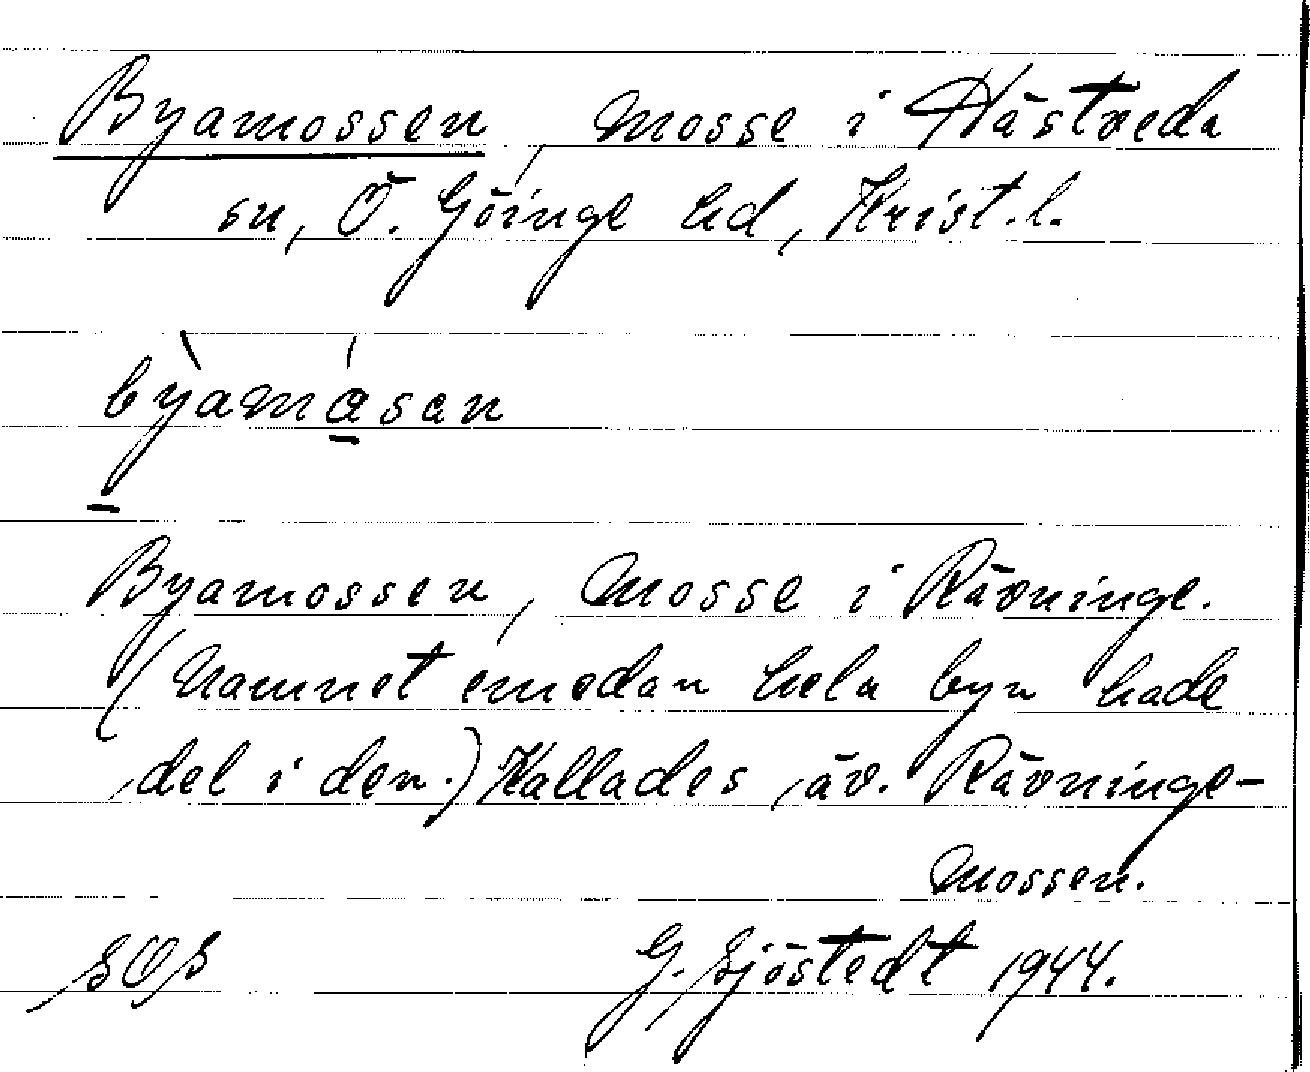 Byamossen, Mosse i Hästveda
sn, Ö. Göinge hd, Krist.l.
bỳamásan
Byamossen, Mosse i Rävninge.
(Namnet emedan hela byn hade
del i den.) Kallades äv. Rävninge-
mossen.
SOS
G. Sjöstedt 1944.